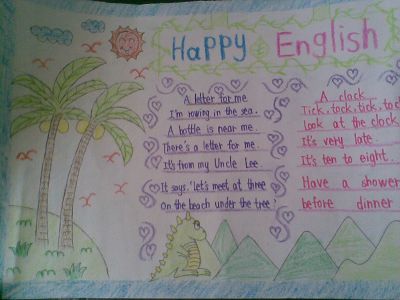 Happy English
A letter for me
I'm rowing in the sea.
A bottle is near me.
There's a letter for me.
It's from my Uncle Lee.
It says, "Let's meet at three
On the beach under the tree."
A clock
Tick, tock, tick, tock
Look at the clock
It's very late.
It's ten to eight.
Have a shower
before dinner